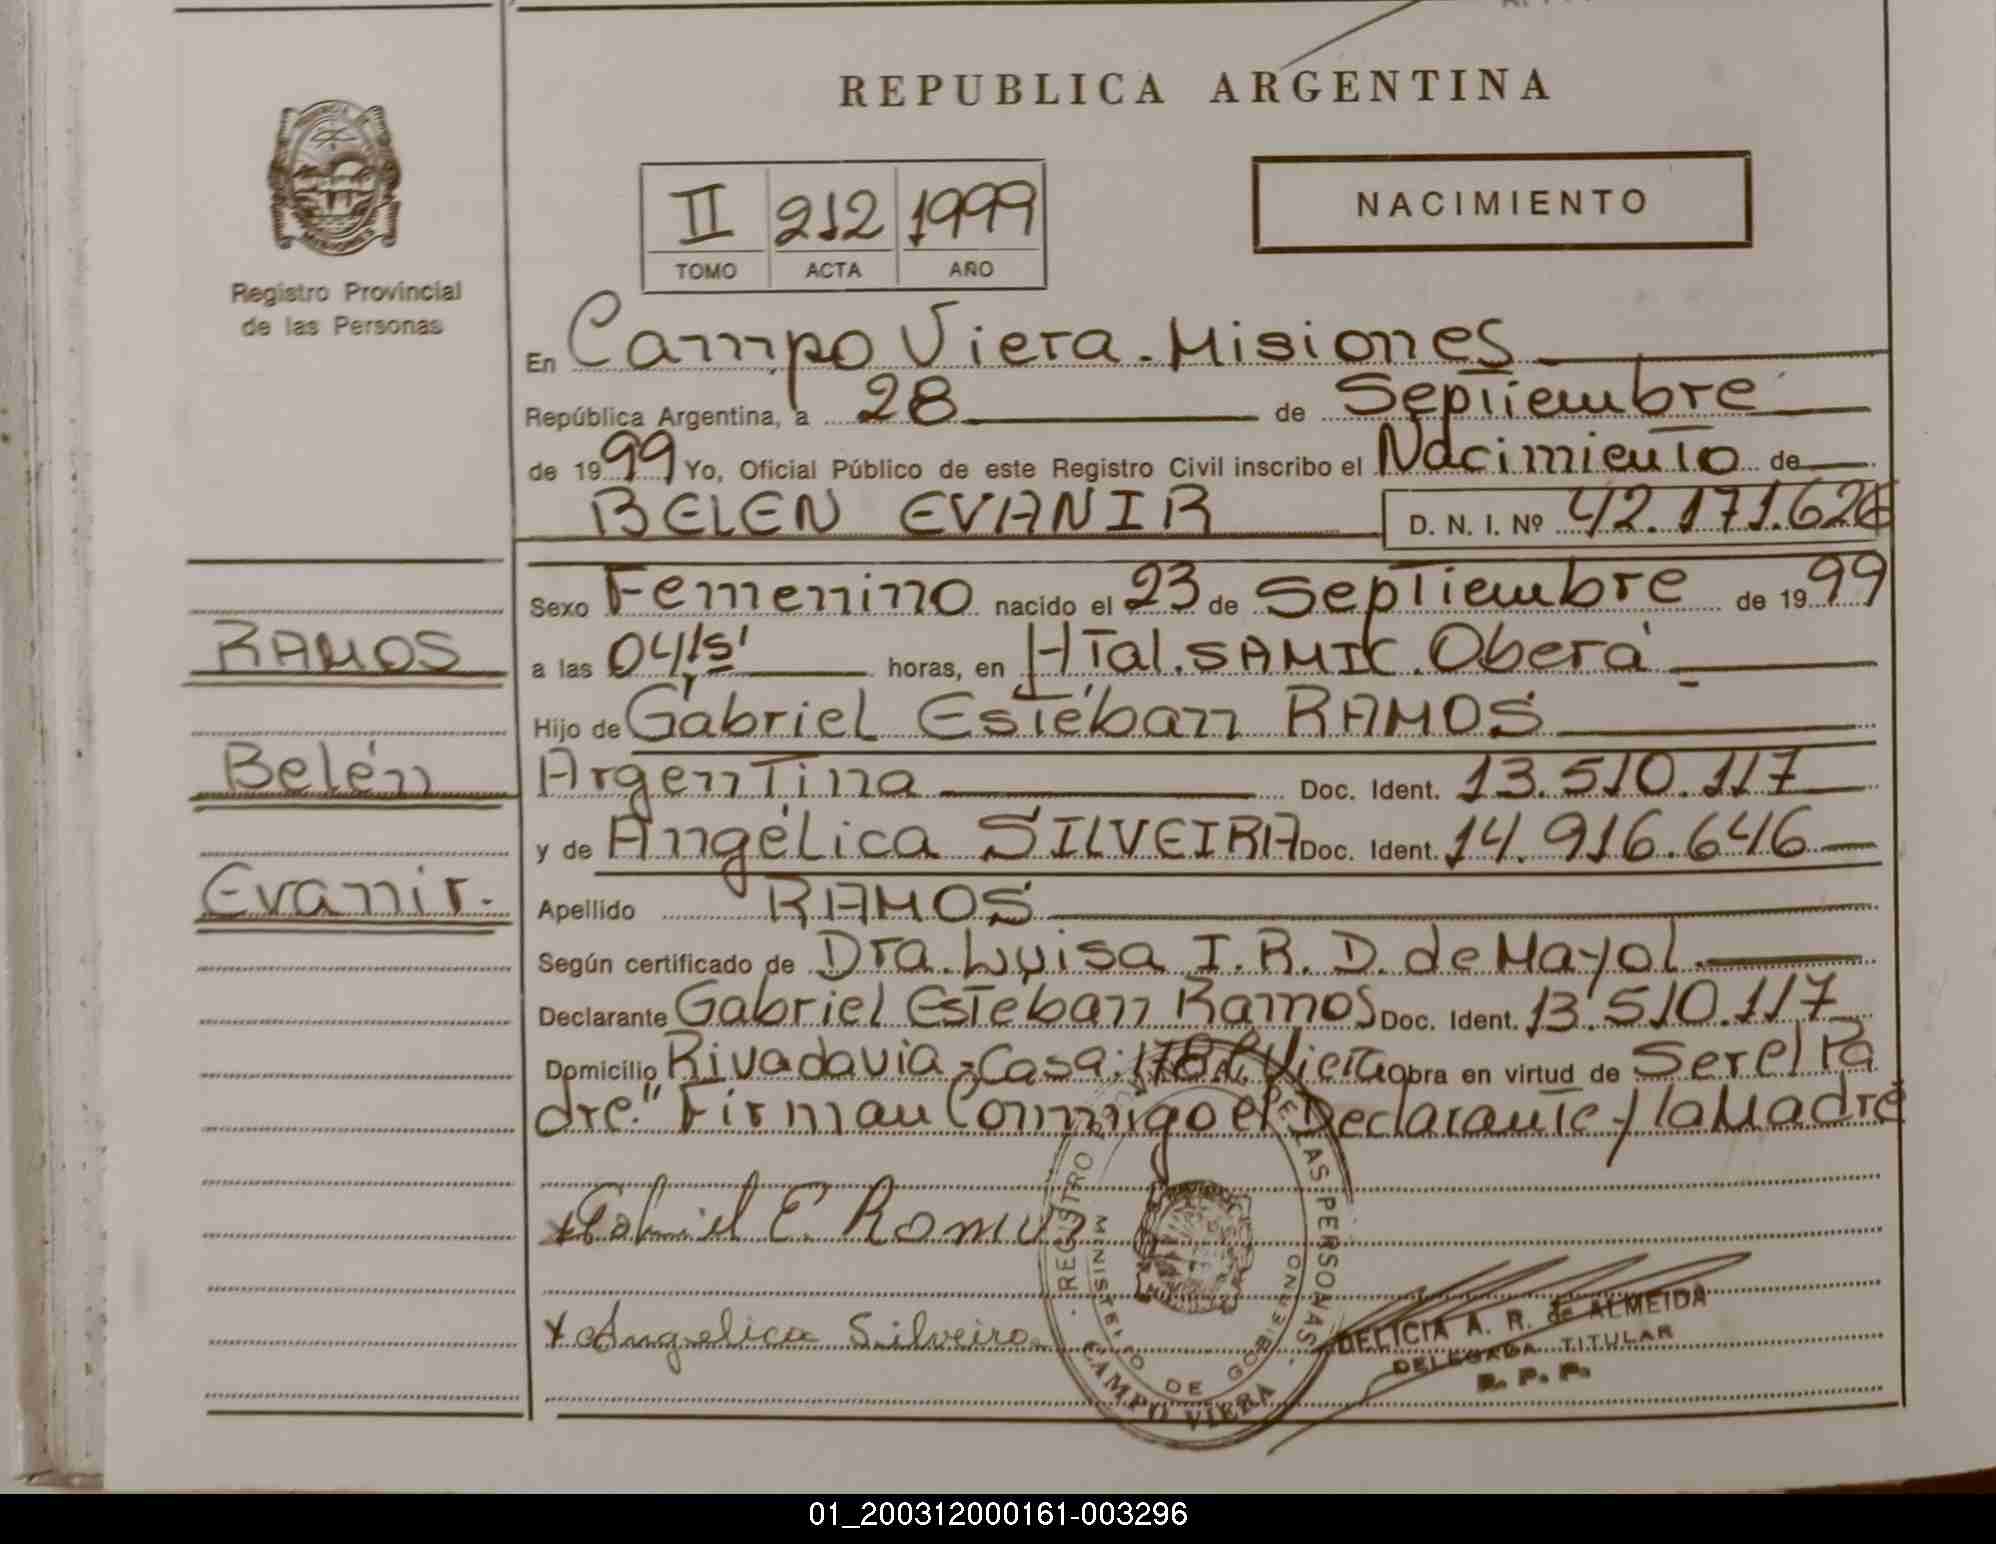 REPUBLICA ARGENTINA
II 212 1999
TOMO ACTA AÑO
NACIMIENTO
Registro Provincial
de las Personas
En Campo Viera - Misiones
República Argentina, a 28 de Septiembre
de 1999 Yo, Oficial Público de este Registro Civil inscribo el Nacimiento de
BELEN EVANIR D. N. I. Nº 42.171.626
Sexo Femenino nacido el 23 de Septiembre de 1999
RAMOS
a las 04,15' horas, en HTal. SAMIC. Oberá
Hijo de Gabriel Estéban RAMOS
Belén
Argentina Doc. Ident. 13.510.117
y de Angélica SILVEIRA Doc. Ident. 14.916.646
Evanir.
Apellido RAMOS
Según certificado de Dra. Luisa I. R. D. de Mayol.
Declarante Gabriel Esteban Ramos Doc. Ident. 13.510.117
Domicilio Rivadavia - Casa: 178 C. Viera obra en virtud de Ser el Pa
dre." Firman Conmigo el Declarante y la Madre
Gabriel E. Ramos
Angelica Silveira
REGISTRO DE LAS PERSONAS
MINISTERIO DE GOBIERNO
CAMPO VIERA
DELICIA A. R. de ALMEIDA
DELEGADA TITULAR
R. P. P.
01_200312000161-003296